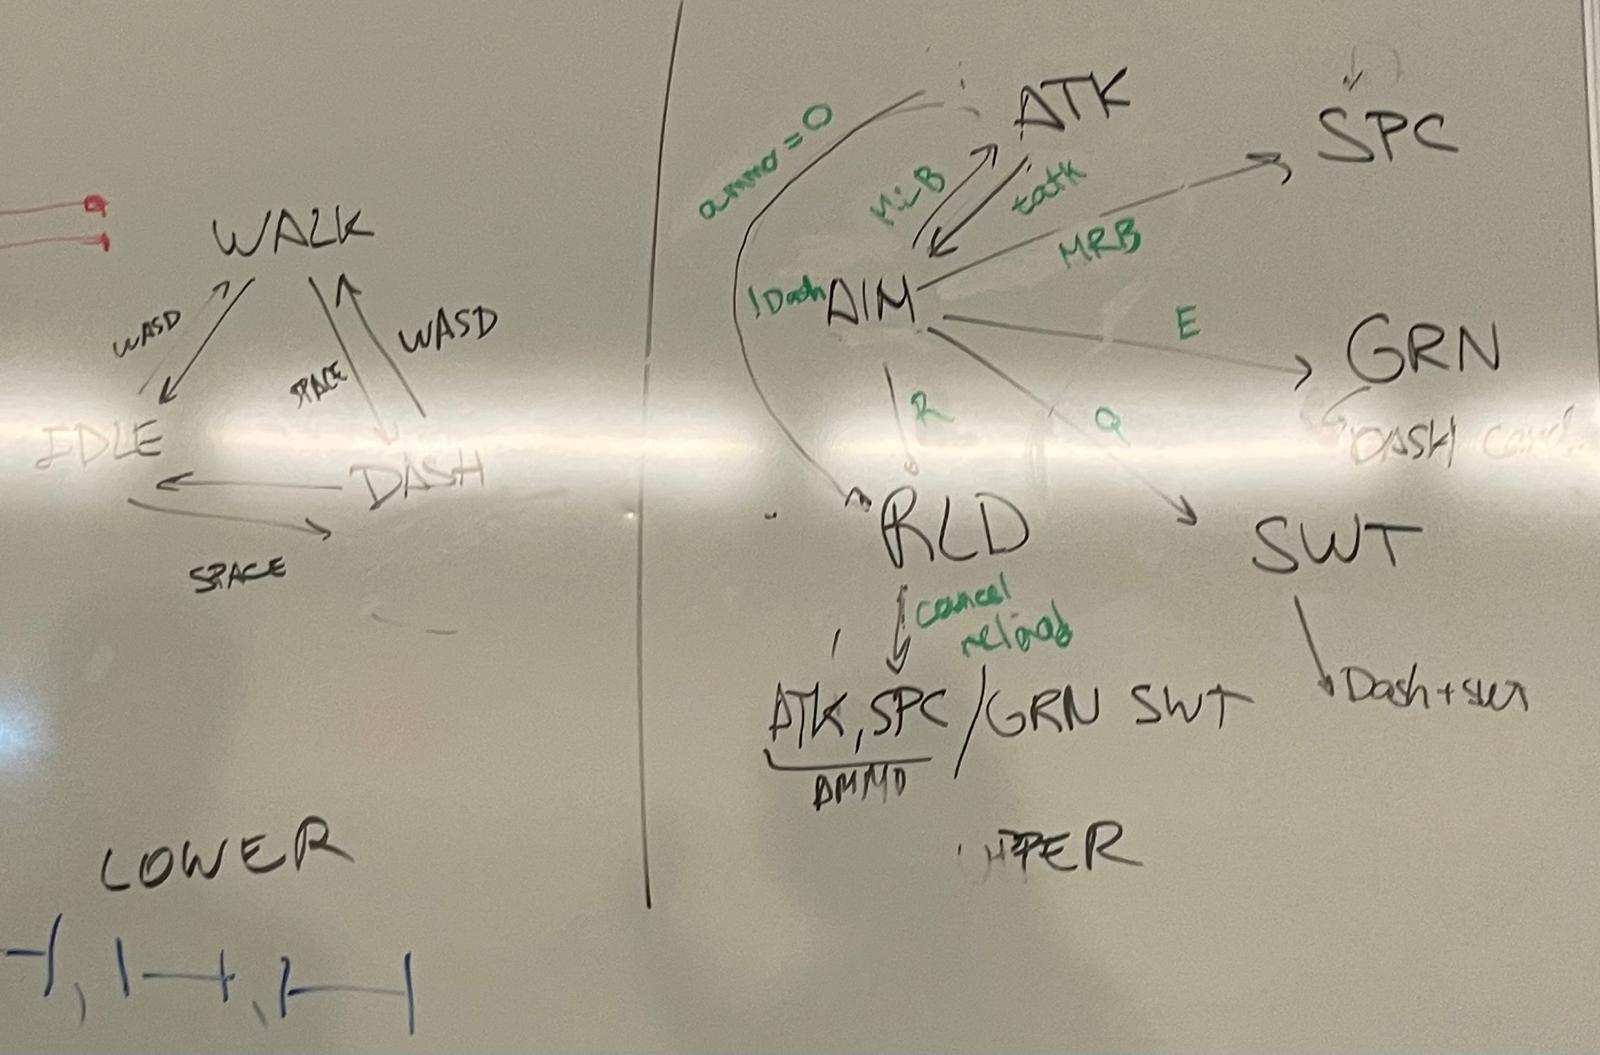 WALK
WASD
SPACE
WASD
IDLE
DASH
SPACE
LOWER
ammo = 0
ATK
SPC
tatk
MRB
!Dash AIM
E
GRN
R
Q
DASH
RLD
SWT
cancel
reload
ATK, SPC / GRN SWT
AMMO
Dash+swt
UPPER